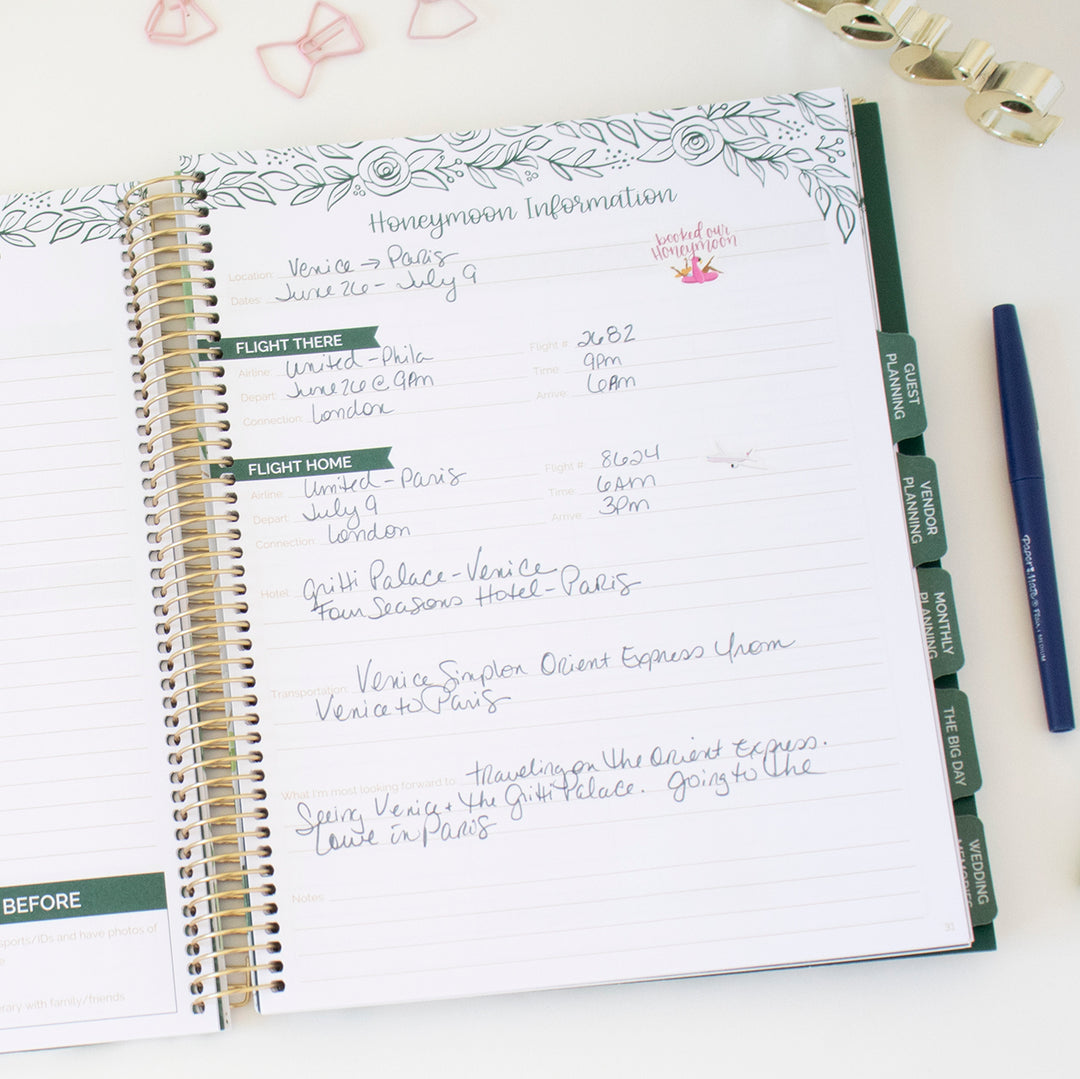 Honeymoon Information
booked our
Honeymoon
Location: Venice → Paris
Dates: June 26 - July 9
FLIGHT THERE
Airline: United - Phila
Flight #: 2682
Depart: June 26 @ 9pm
Time: 9pm
Connection: London
Arrive: 6am
FLIGHT HOME
Airline: United - Paris
Flight #: 8624
Depart: July 9
Time: 6am
Connection: London
Arrive: 3pm
Hotel: Gritti Palace - Venice
Four Seasons Hotel - Paris
Transportation: Venice Simplon Orient Express from
Venice to Paris
What I'm most looking forward to: traveling on the Orient Express.
Seeing Venice + the Gritti Palace. Going to the
Louve in Paris
Notes:
31
GUEST
PLANNING
VENDOR
PLANNING
MONTHLY
PLANNING
THE BIG DAY
WEDDING
MEMORIES
BEFORE
sports/IDs and have photos of
e
erary with family/friends
Paper Mate® Flair MEDIUM